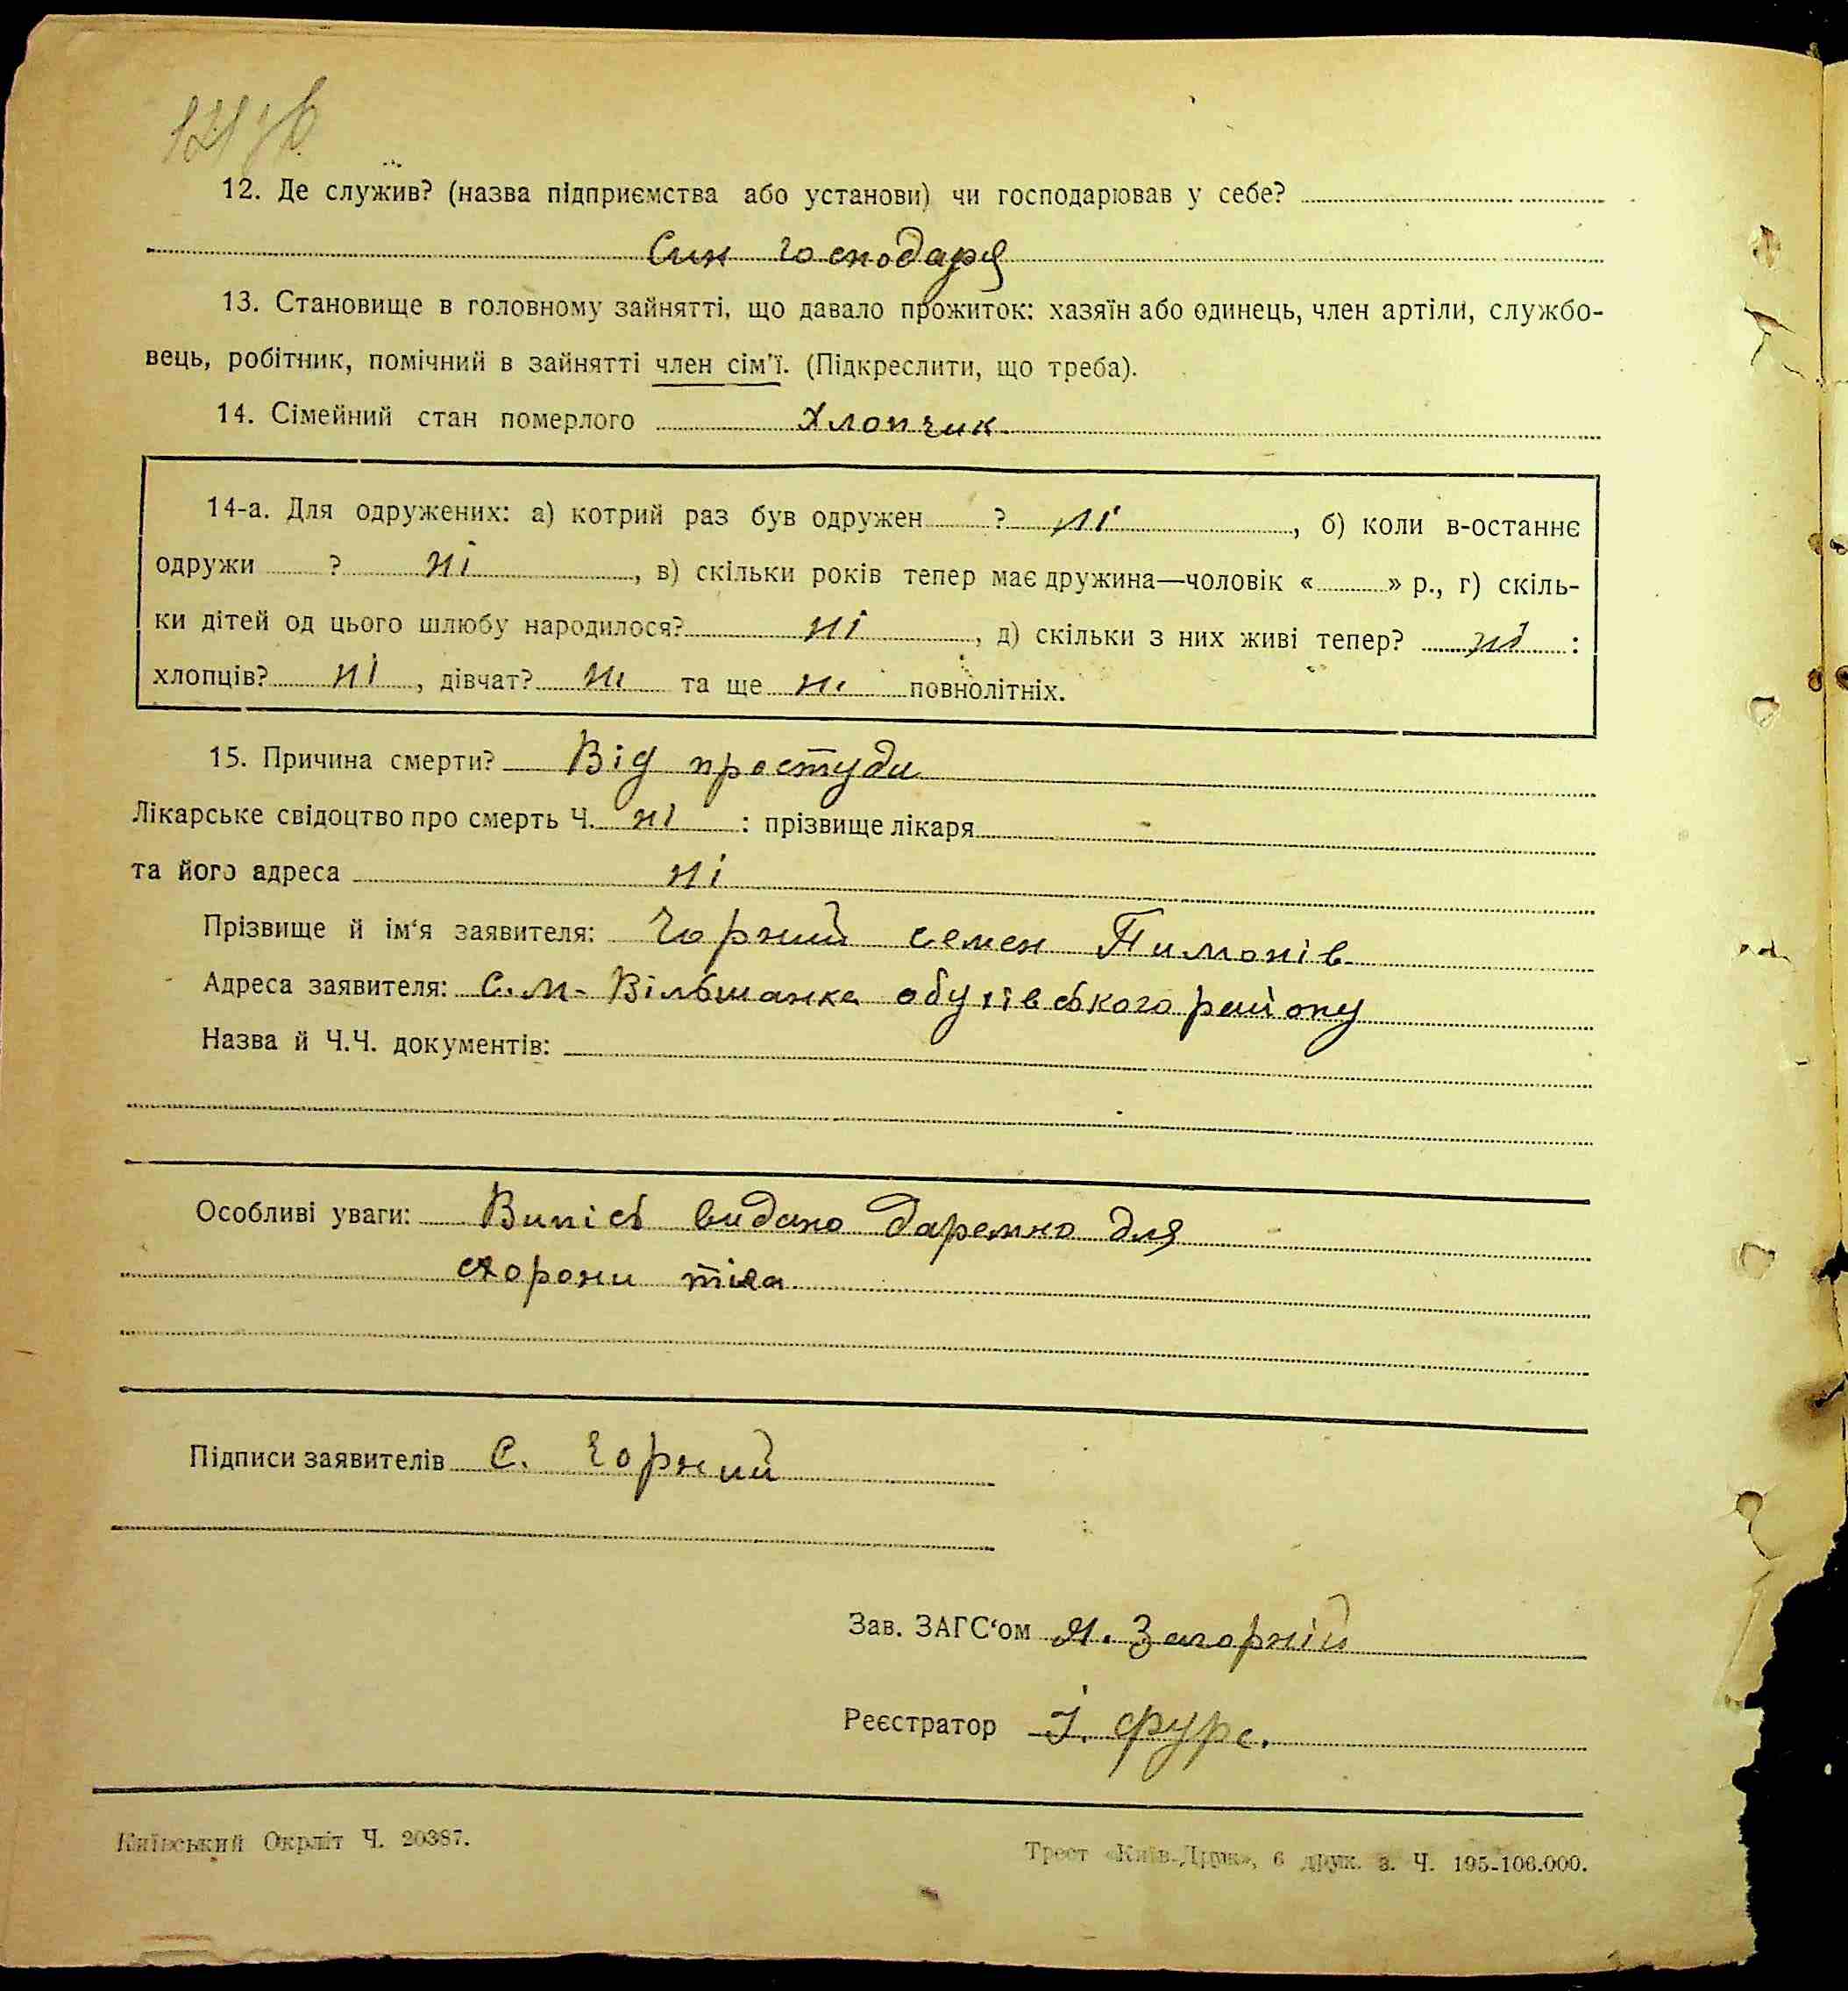 121 зв
12. Де служив? (назва підприємства або установи) чи господарював у себе?
Син господаря
13. Становище в головному зайнятті, що давало прожиток: хазяїн або одинець, член артіли, службо-
вець, робітник, помічний в зайнятті член сім'ї. (Підкреслити, що треба).
14. Сімейний стан померлого Хлопчик
14-а. Для одружених: а) котрий раз був одружен ? ні , б) коли в-останнє
одружи ? ні , в) скільки років тепер має дружина—чоловік « » р., г) скіль-
ки дітей од цього шлюбу народилося? ні , д) скільки з них живі тепер? ні :
хлопців? ні , дівчат? ні та ще ні повнолітніх.
15. Причина смерти? Від простуди
Лікарське свідоцтво про смерть Ч. ні : прізвище лікаря -
та його адреса ні
Прізвище й ім'я заявителя: Чорний семен Пимонів
Адреса заявителя: С. М- Вільшанка обухівського району
Назва й Ч.Ч. документів:
Особливі уваги: Випісь видано даремно для
схорони тіла
Підписи заявителів С. Чорний
Зав. ЗАГС'ом Я. Загорній
Реєстратор І. фурс.
Київський Окрліт Ч. 20387.
Трест «Київ-Друк», 6 друк. з. Ч. 195-106.000.